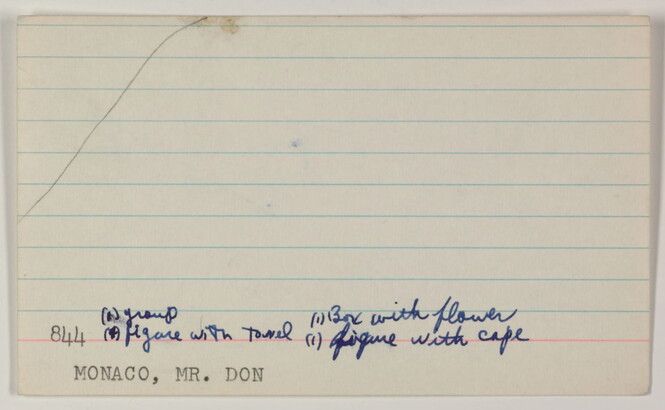 group (1) Box with flower
844 figure with towel (1) figure with cape
MONACO, MR. DON